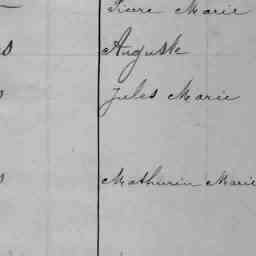 Pierre Marie
Auguste
Jules Marie
Mathurin Marie